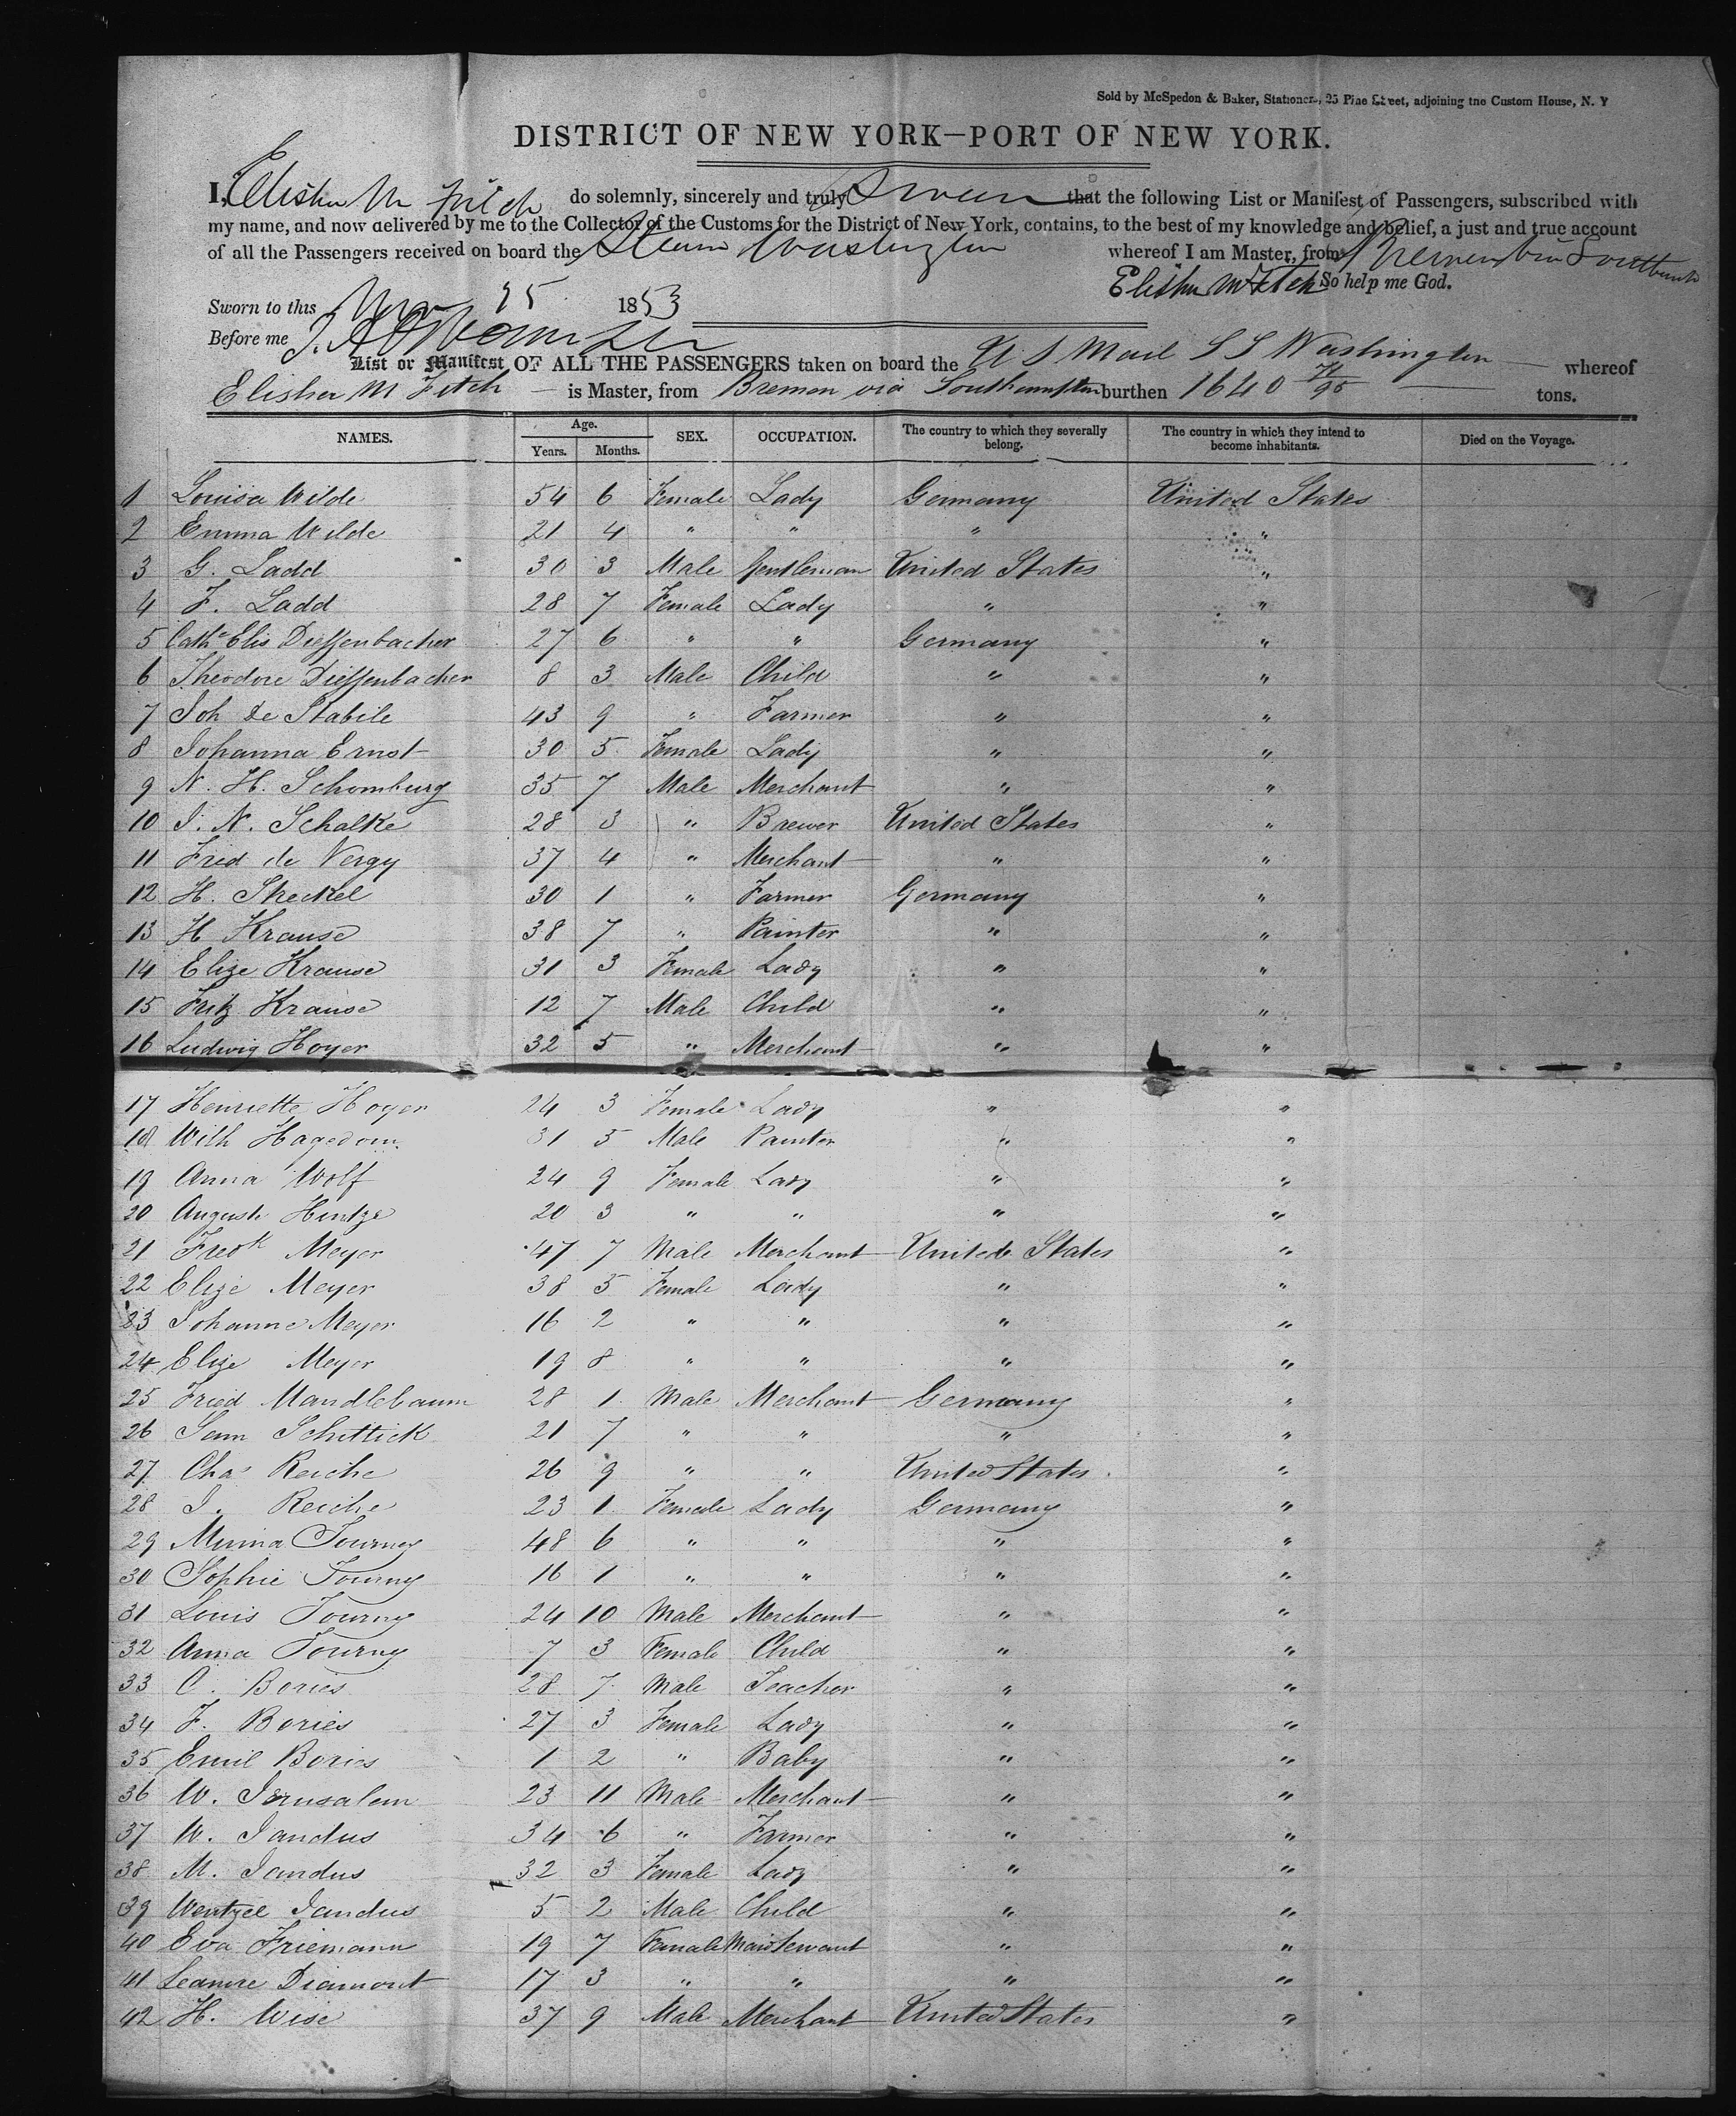 Sold by McSpedon & Baker, Stationers, 25 Pine Street, adjoining the Custom House, N. Y
DISTRICT OF NEW YORK—PORT OF NEW YORK.
I, Elisha M Fitch do solemnly, sincerely and truly Swear that the following List or Manifest of Passengers, subscribed with
my name, and now delivered by me to the Collector of the Customs for the District of New York, contains, to the best of my knowledge and belief, a just and true account
of all the Passengers received on board the Steam Washington whereof I am Master, from Bremen via Southampton
Elisha M Fitch So help me God.
Sworn to this 25 1853
Before me
List or Manifest OF ALL THE PASSENGERS taken on board the U S Mail S S Washington whereof
Elisha M Fitch is Master, from Bremen via Southampton burthen 1640 71/95 tons.
NAMES. Age. Years. Months. SEX. OCCUPATION. The country to which they severally belong. The country in which they intend to become inhabitants. Died on the Voyage.
1 Louisa Wilde 54 6 Female Lady Germany United States
2 Emma Wilde 21 4 " " " "
3 G. Ladd 30 3 Male Gentleman United States "
4 F. Ladd 28 7 Female Lady " "
5 Cath Elis Dieffenbacher 27 6 " " Germany "
6 Theodore Dieffenbacher 8 3 Male Child " "
7 Joh De Stabile 43 9 " Farmer " "
8 Johanna Ernst 30 5 Female Lady " "
9 N. H. Schomburg 35 7 Male Merchant " "
10 J. N. Schalke 28 3 " Brewer United States "
11 Fred de Vergy 37 4 " Merchant " "
12 H. Steckel 30 1 " Farmer Germany "
13 H Krause 38 7 " Painter " "
14 Elize Krause 31 3 Female Lady " "
15 Fritz Krause 12 7 Male Child " "
16 Ludwig Hoyer 32 5 " Merchant " "
17 Henriette Hoyer 24 3 Female Lady " "
18 Wilh Hagedorn 31 5 Male Painter " "
19 Anna Wolf 24 9 Female Lady " "
20 Auguste Hintze 20 3 " " " "
21 Fredk Meyer 47 7 Male Merchant United States "
22 Elize Meyer 38 5 Female Lady " "
23 Johanne Meyer 16 2 " " " "
24 Elize Meyer 19 8 " " " "
25 Fried Mandlebaum 28 1 Male Merchant Germany "
26 Sam Schittick 21 7 " " " "
27 Chas Reiche 26 9 " " United States "
28 J. Reiche 23 1 Female Lady Germany "
29 Minna Tourney 48 6 " " " "
30 Sophie Tourny 16 1 " " " "
31 Louis Tourny 24 10 Male Merchant " "
32 Anna Tourny 7 3 Female Child " "
33 C. Bories 28 7 Male Teacher " "
34 F. Bories 27 3 Female Lady " "
35 Emil Bories 1 2 " Baby " "
36 W. Jerusalem 23 11 Male Merchant " "
37 W. Jandus 34 6 " Farmer " "
38 M. Jandus 32 3 Female Lady " "
39 Wentzel Jandus 5 2 Male Child " "
40 Eva Friemann 19 7 Female Maidservant " "
41 Leanore Diamont 17 3 " " " "
42 H. Wise 37 9 Male Merchant United States "